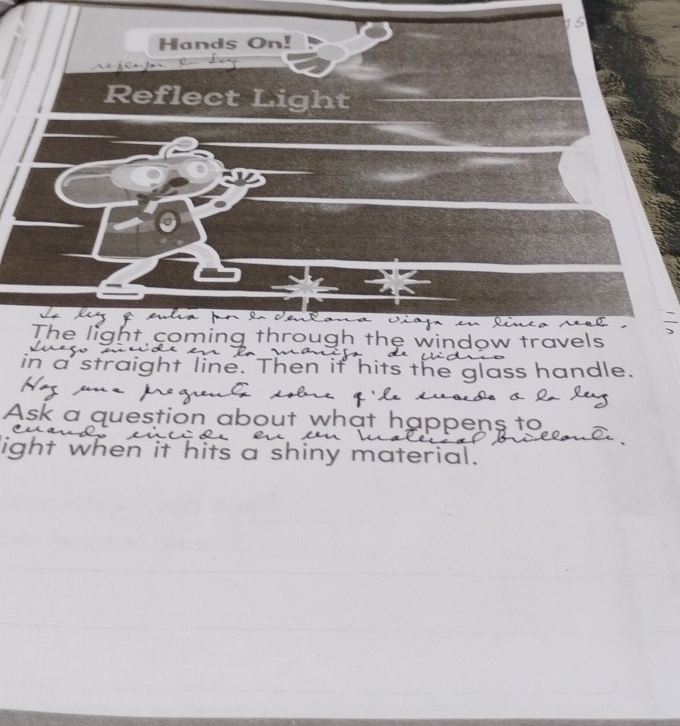 Hands On!
reflejar la luz
Reflect Light
La luz q entra por la ventana viaja en línea rect.
The light coming through the window travels
Luego incide en la manija de vidrio
in a straight line. Then it hits the glass handle.
Haz una pregunta sobre q' le sucede a la luz
Ask a question about what happens to
cuando incide en un material brillante.
ight when it hits a shiny material.